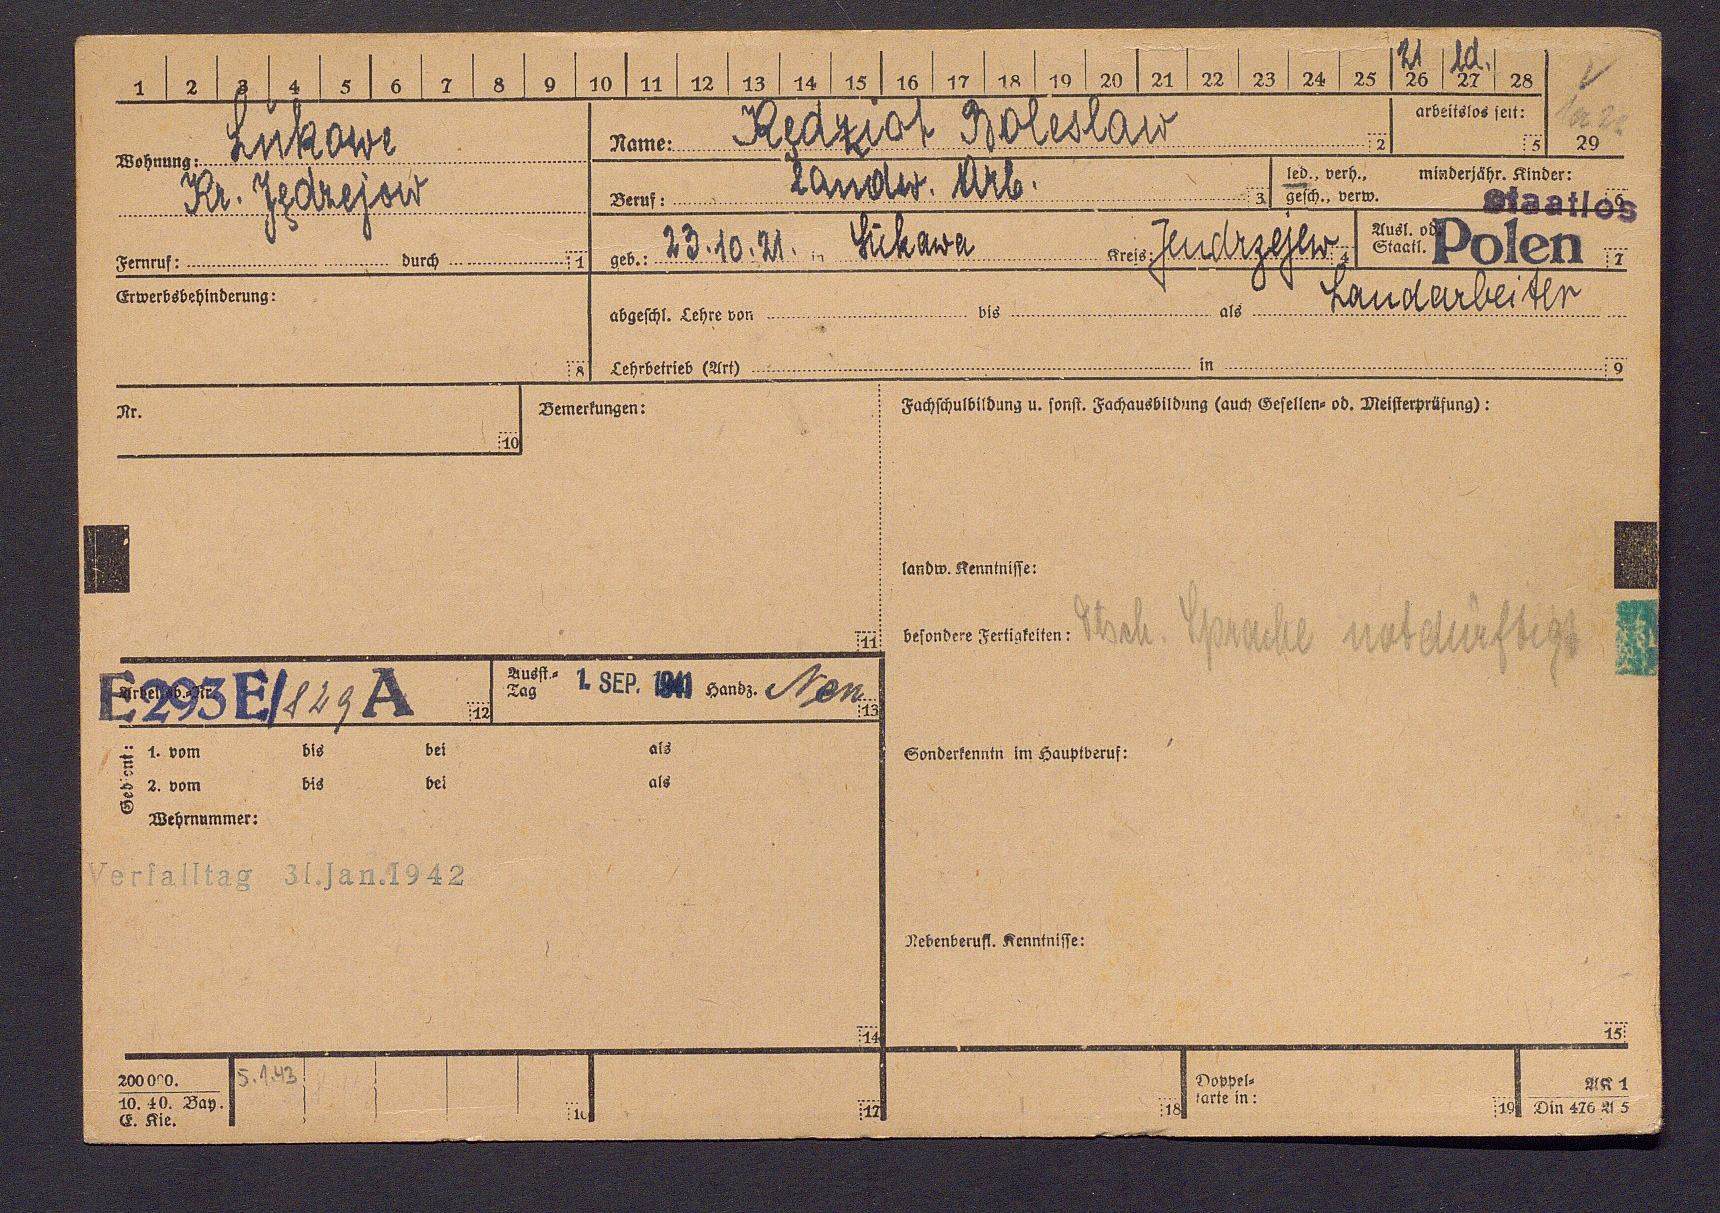 21 ld.
1 2 3 4 5 6 7 8 9 10 11 12 13 14 15 16 17 18 19 20 21 22 23 24 25 26 27 28
29
Wohnung: Lukowe
Kr. Jędrzejow
Fernruf: durch 1
Name: Kędziot Boleslaw 2
arbeitslos seit: 5
Beruf: Landw. Arb. 3
led., verh., gesch., verw.
minderjähr. Kinder: 6
Staatlos
geb.: 23.10.21. in Lukawa Kreis: Jendrzejew 4
Ausl. od. Staatl. Polen 7
Erwerbsbehinderung: 8
abgeschl. Lehre von bis als Landarbeiter
Lehrbetrieb (Art) in 9
Nr. 10
Bemerkungen: 11
Fachschulbildung u. sonst. Fachausbildung (auch Gesellen- od. Meisterprüfung):
landw. Kenntnisse:
besondere Fertigkeiten: dtsch. Sprache notdürftigst
Arbeitsb.-Nr. E293E/829A 12
Ausst.-Tag 1. SEP. 1941 Handz. 13
Gedient:
1. vom bis bei als
2. vom bis bei als
Wehrnummer:
Sonderkenntn im Hauptberuf:
Verfalltag 31.Jan.1942
Nebenberufl. Kenntnisse:
14
15
200000.
10. 40. Bay.
E. Kie.
5.1.43
16
17
18
Doppel-
karte in: 19
AK 1
Din 476 A 5